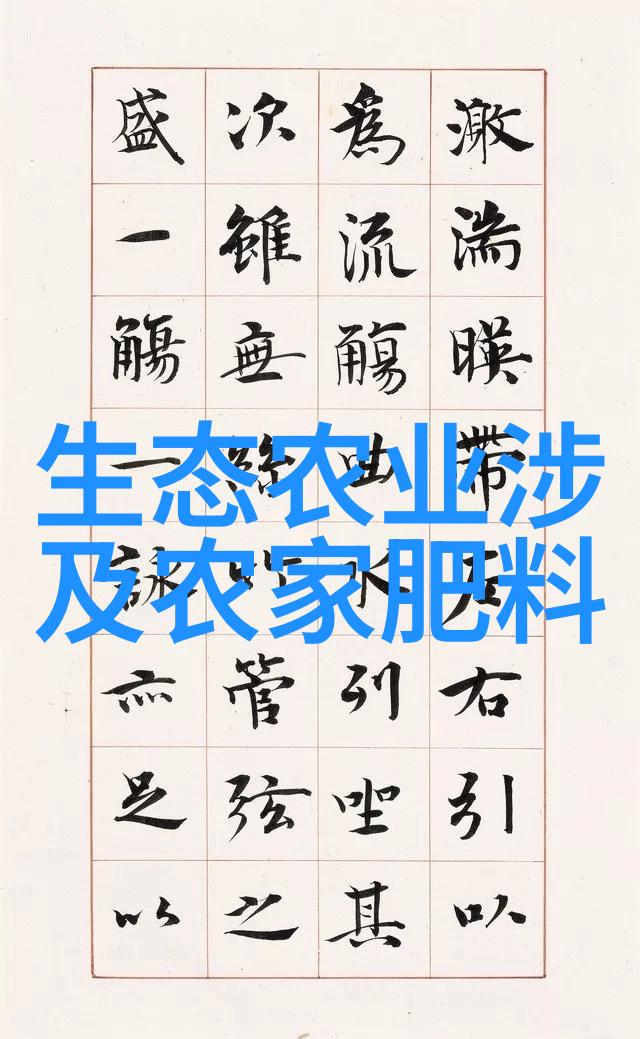 生态农业涉
及农家肥料
激湍暎帶左右引以
為流觴曲水列坐其
次雖無絲竹管弦之
盛一觴一詠亦足以